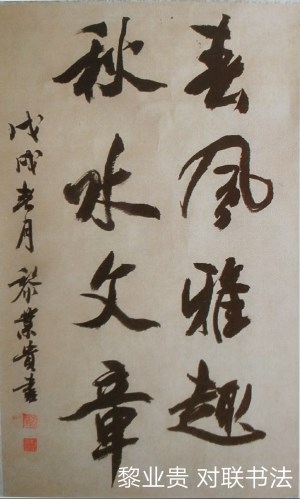 春風雅趣
秋水文章
戊戌春月 黎業貴書
黎业贵 对联书法